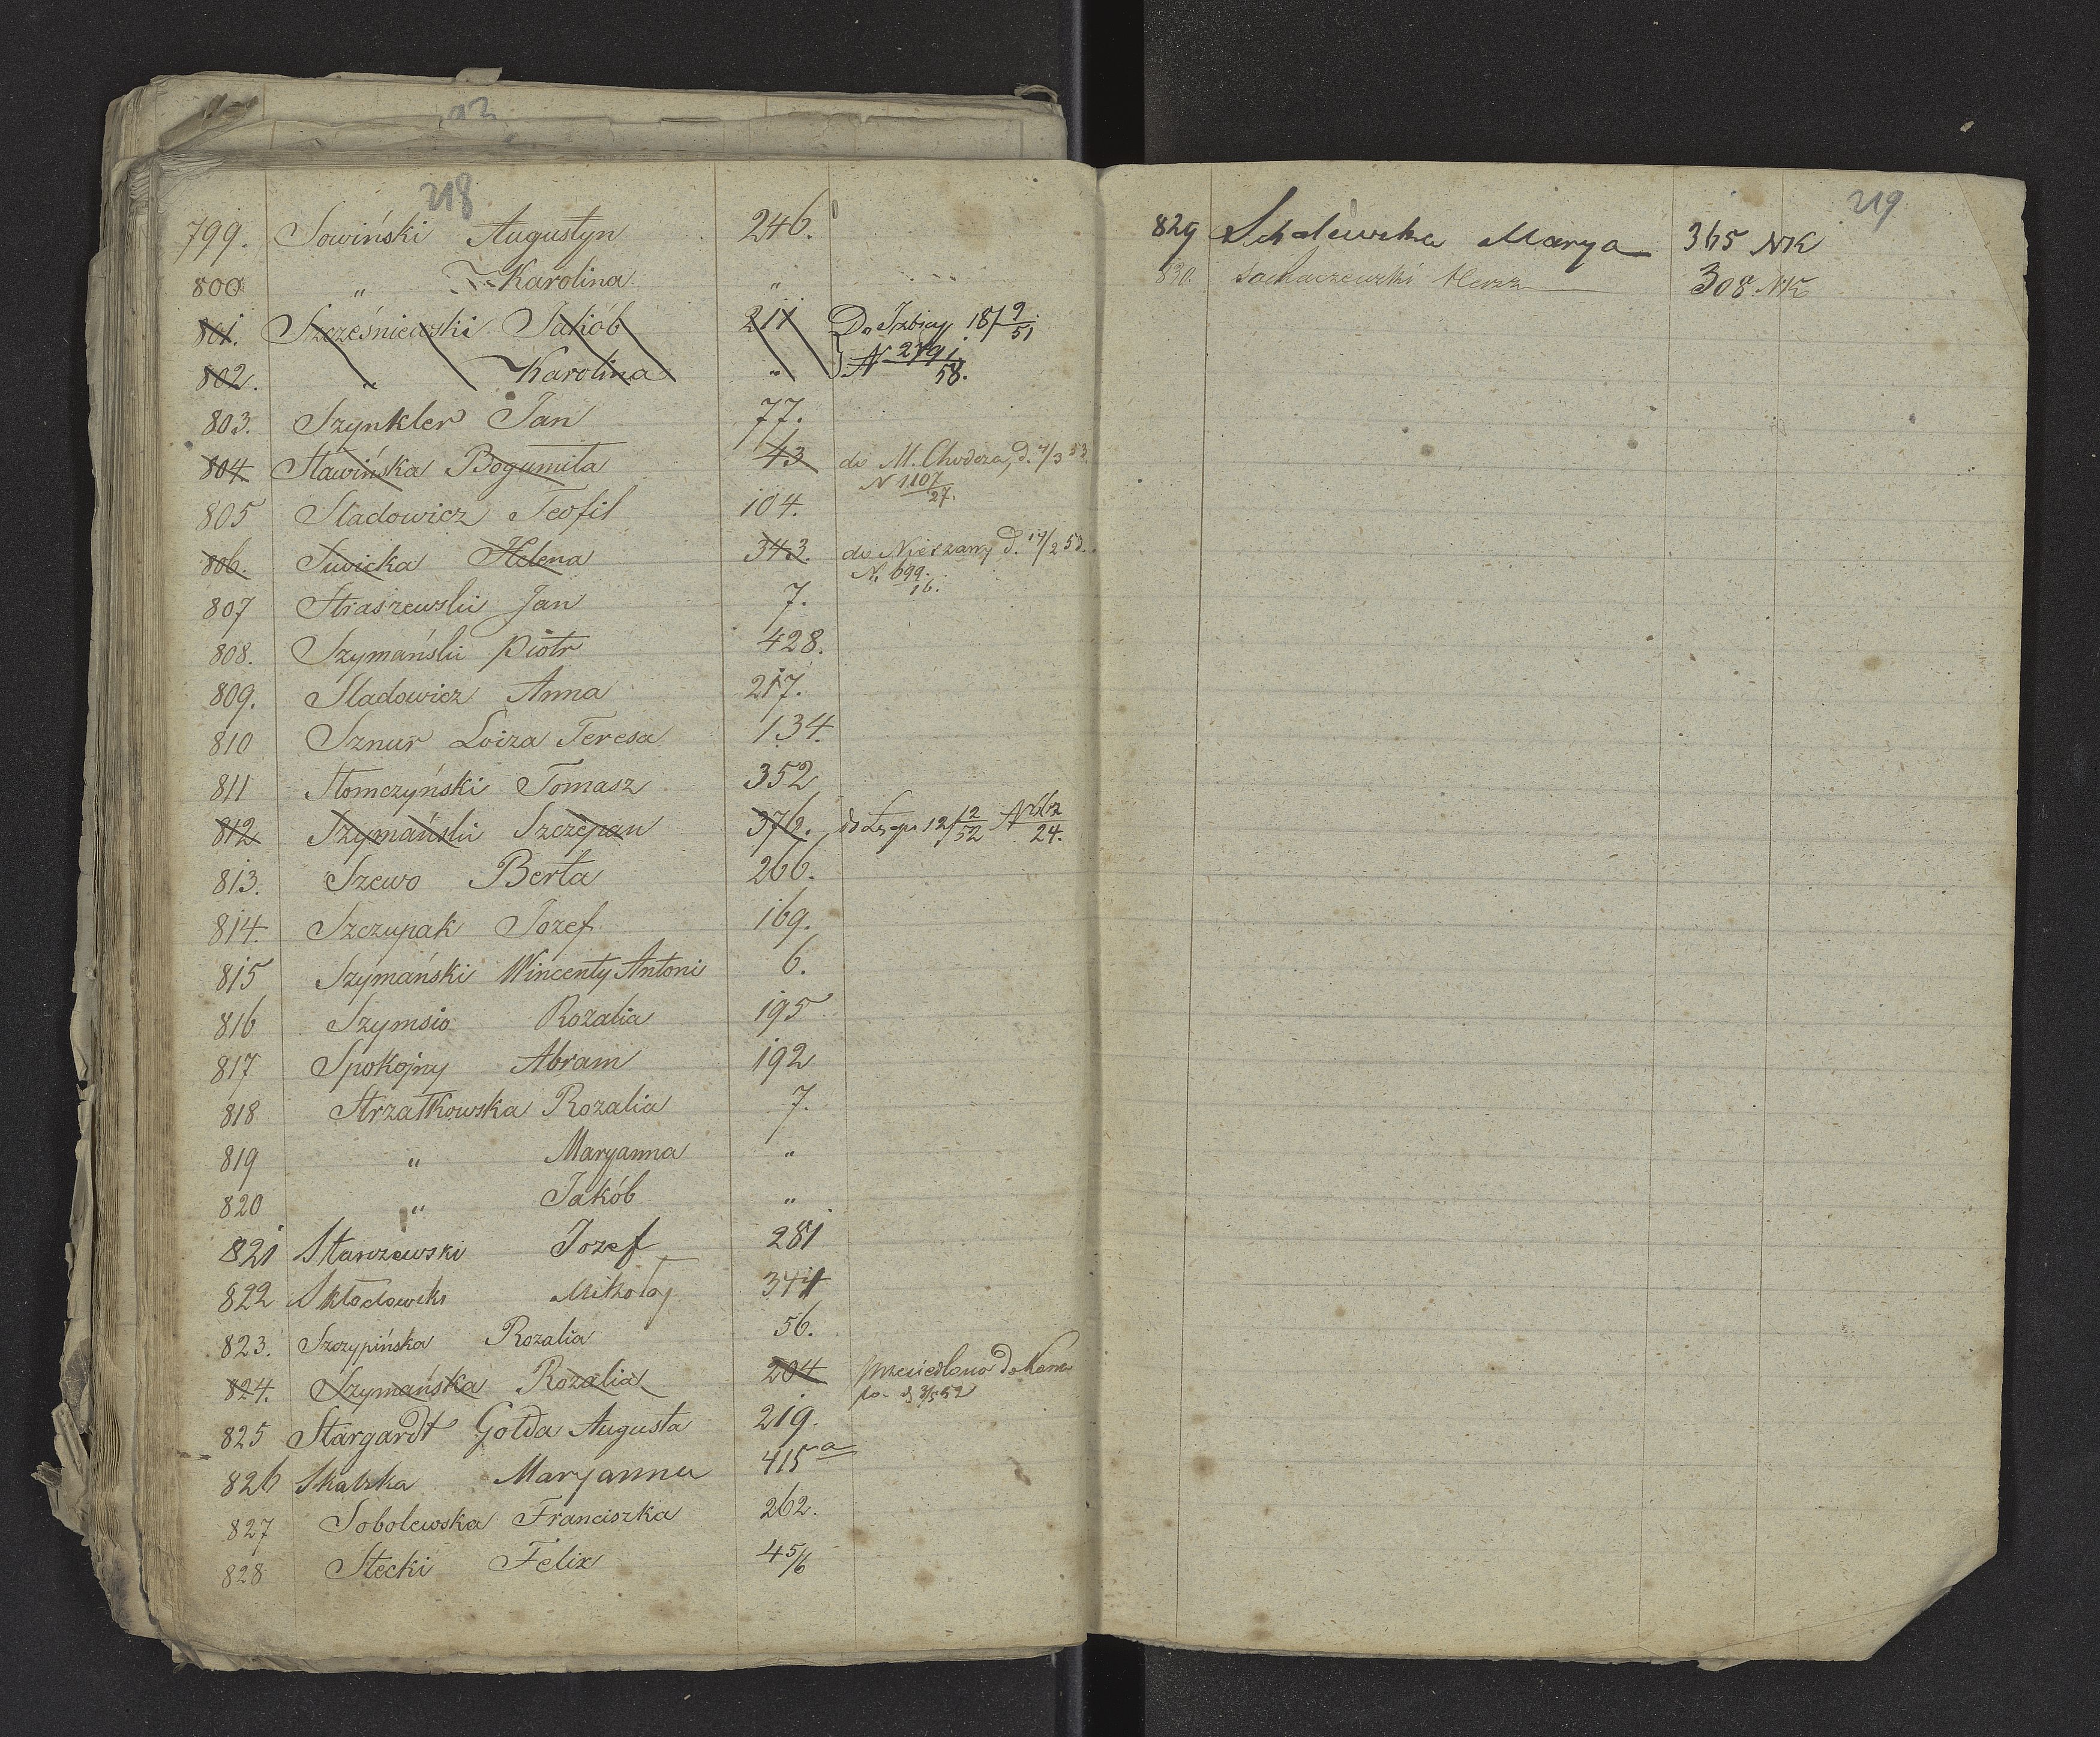 218
799. Sowiński Augustyn 246.
800 " Karolina "
801. Szcześniewski Jakób 211 Do Izbicy 18/9 51
802. " Karolina " N 2791/58.
803. Szynkler Jan 77.
804. Sławińska Bogumiła 43 do M. Chodcza, d. 4/3 53.
N 1107/27.
805 Sladowicz Teofil 104.
806. Suwicka Helena 343. do Nieszawy d. 14/2 53.
N. 699./16.
807 Straszewski Jan 7.
808. Szymański Piotr 428.
809. Sladowicz Anna 217.
810 Sznur Loiza Teresa 134.
811 Słomczyński Tomasz 352
812 Szymański Szczepan 376. 12/12 52 N 24.
813. Szewo Berta 266.
814. Szczupak Jozef 169.
815 Szymański Wincenty Antoni 6.
816 Szymsio Rozalia 195
817 Spokojny Abram 192
818 Strzałkowska Rozalia 7.
819 " Maryanna "
820 " Jakób "
821 Starzewski Jozef 281
822 Skłodowski Mikołaj 344
823. Szczypińska Rozalia 56.
824. Szymańska Rozalia 204 do
d 3/5 52
825 Stargardt Golda Augusta 219.
826 Skalska Maryanna 415 a
827 Sobolewska Franciszka 262.
828 Stecki Felix 45/6
219
829 Marya 365 NK
830. Sochaczewski Herz 308 NK